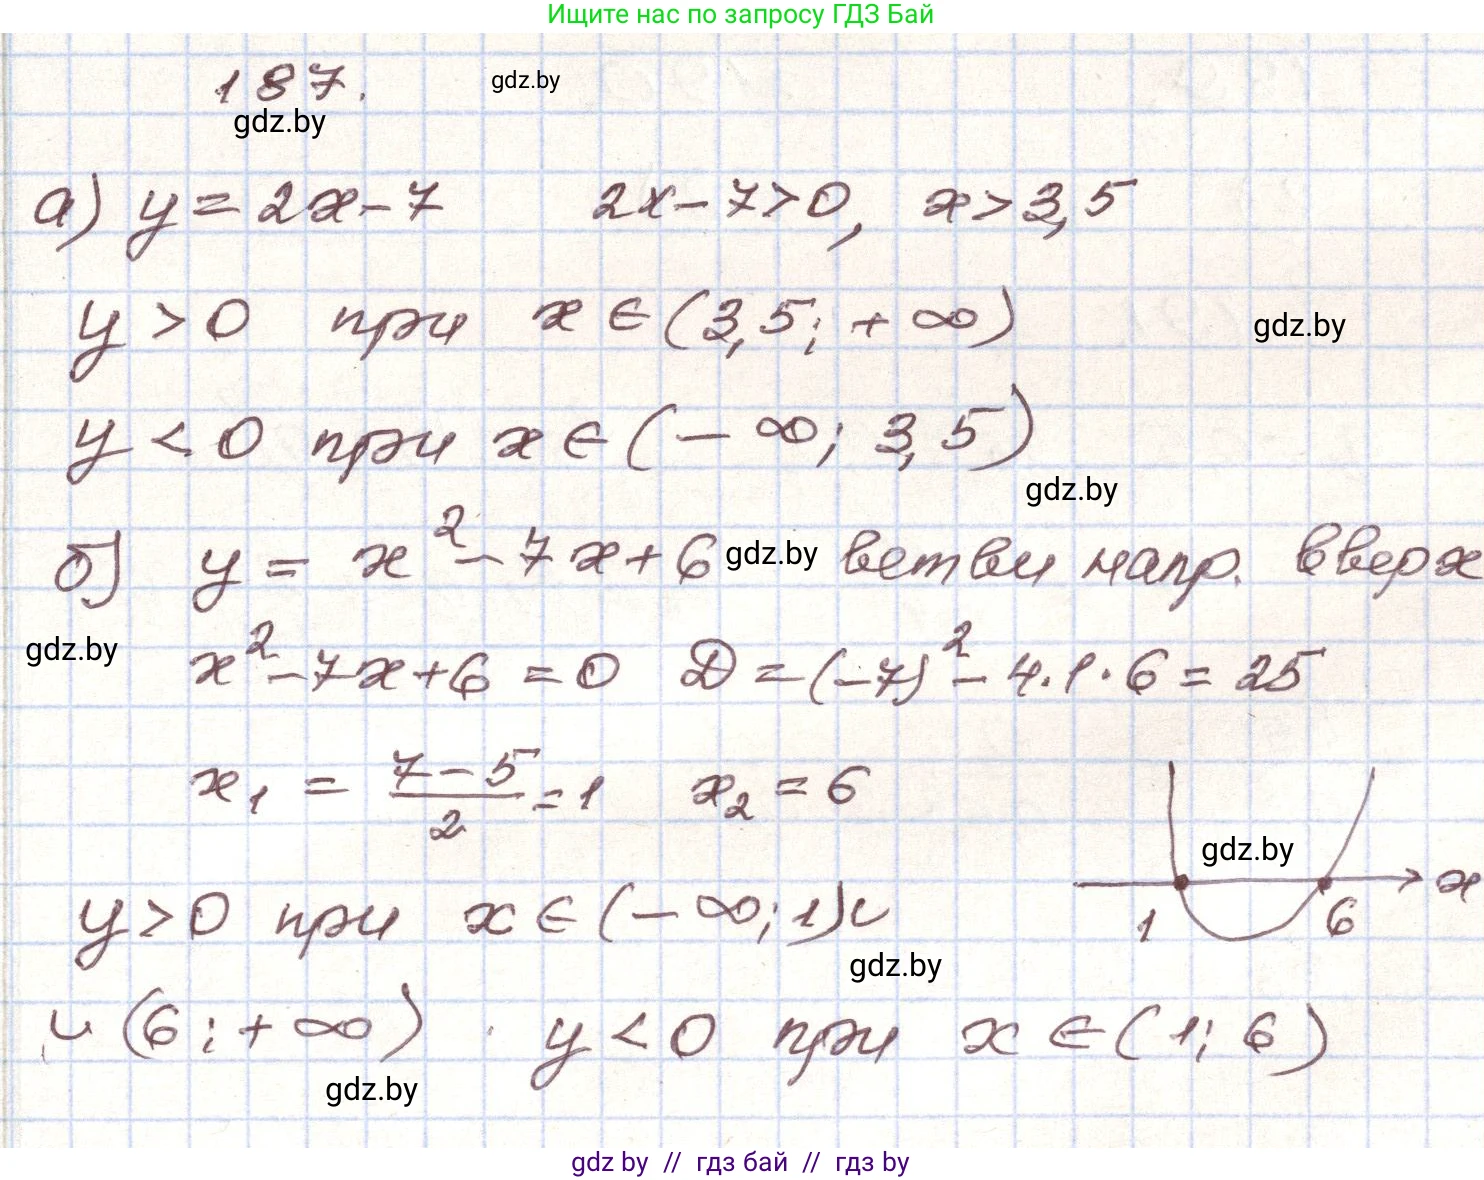 Ищите нас по запросу ГДЗ Бай
187.
gdz.by
gdz.by
а) y = 2x - 7     2x - 7 > 0, x > 3,5
y > 0 при x ∈ (3,5; + ∞)
gdz.by
y < 0 при x ∈ (- ∞; 3,5)
gdz.by
б) y = x² - 7x + 6 gdz.by ветви напр. вверх
gdz.by
x² - 7x + 6 = 0   D = (-7)² - 4·1·6 = 25
x₁ = (7 - 5)/2 = 1   x₂ = 6
gdz.by
x
1 6
y > 0 при x ∈ (- ∞; 1) ∪
gdz.by
∪ (6; + ∞)   y < 0 при x ∈ (1; 6)
gdz.by
gdz by // гдз бай // гдз by